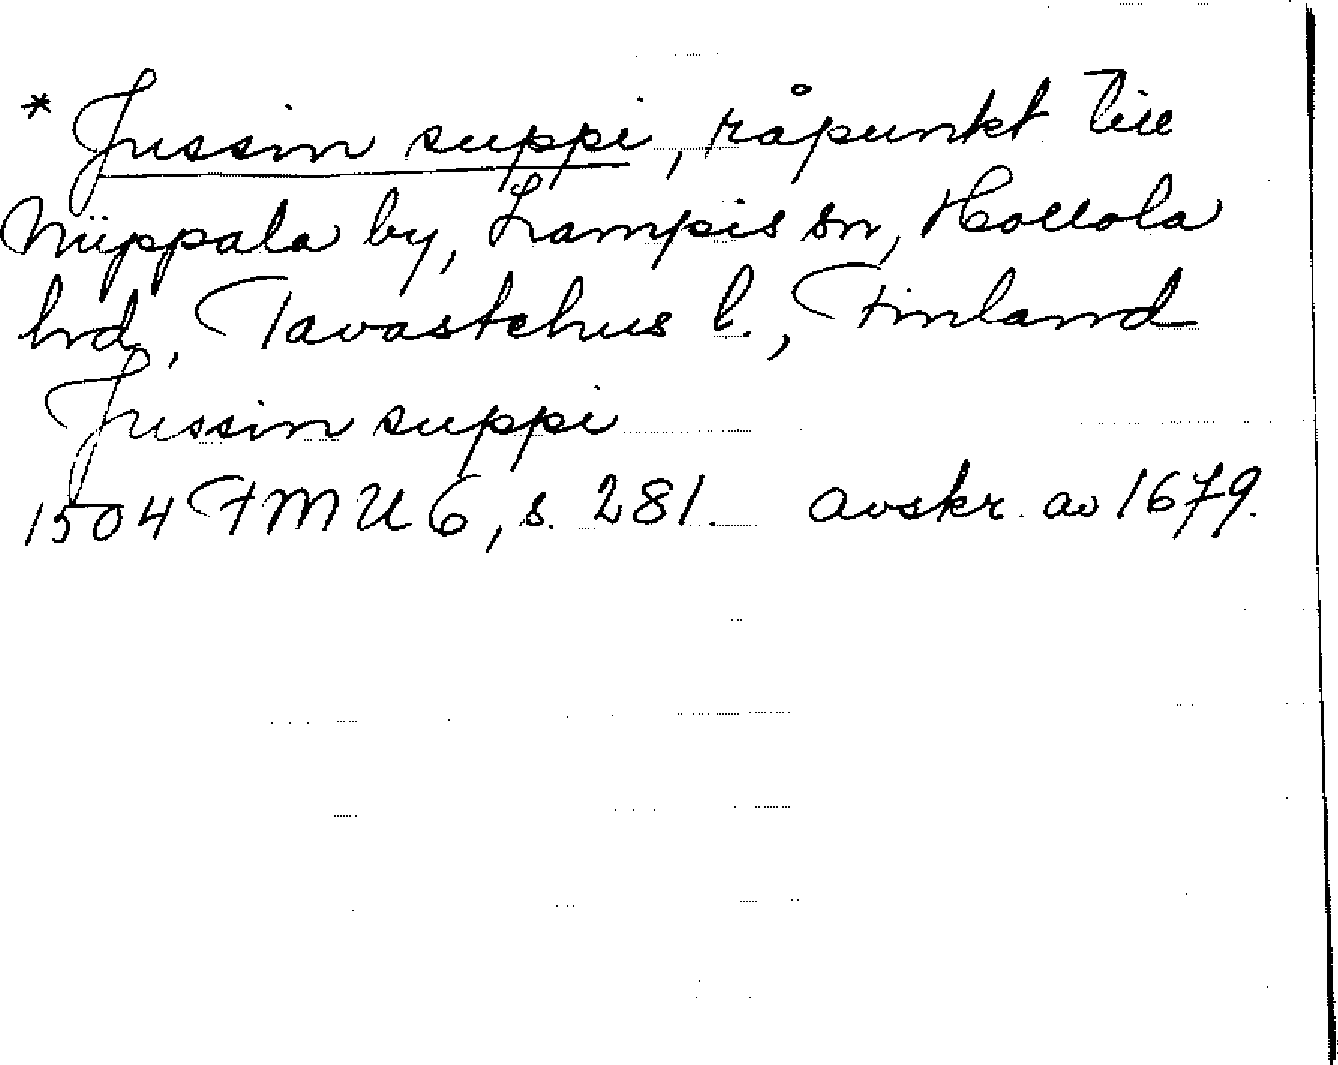 * Jussin suppi, råpunkt till
Nüppala by, Lampis sn, Hollola
hd, Tavastehus l., Finland
Jussin suppi
1504 FMU 6, s. 281. avskr. av 1679.